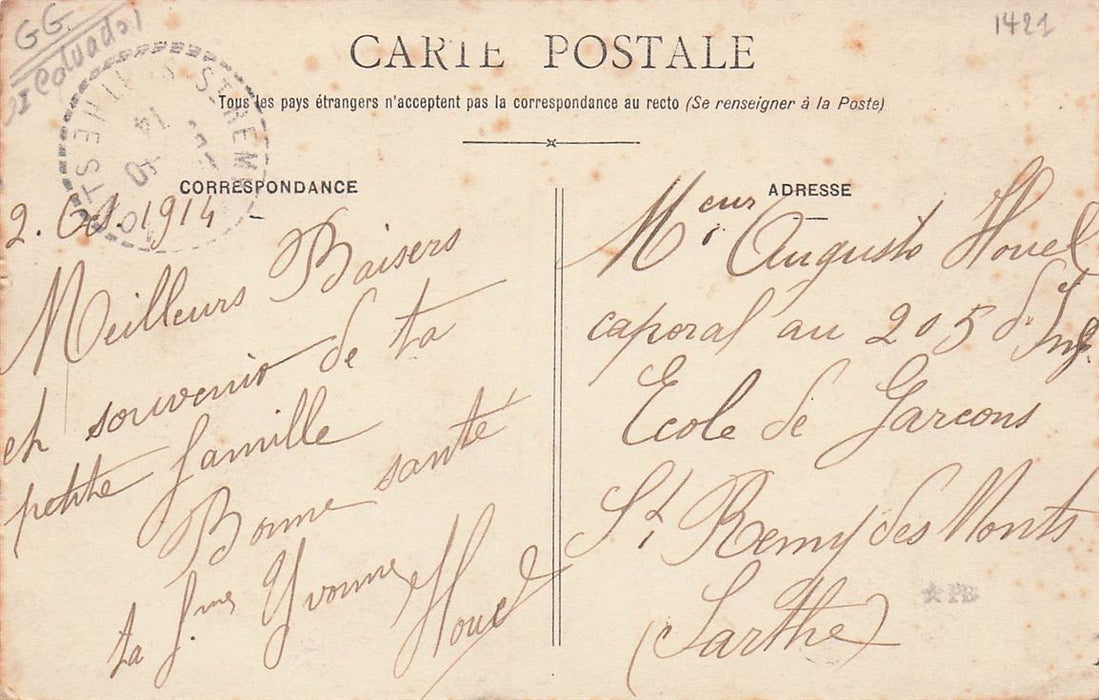 GG
Calvados
1421
CARTE POSTALE
Tous les pays étrangers n'acceptent pas la correspondance au recto (Se renseigner à la Poste)
CORRESPONDANCE
2. Oct. 1914 -
Meilleurs Baisers
et souvenir de ta
petite famille
Bonne santé
ta f.me Yvonne Houel
ADRESSE
Mr eur Auguste Houel
caporal au 205 d'Inf.
Ecole de Garcons
St Remy des Monts
(Sarthe)
★PB